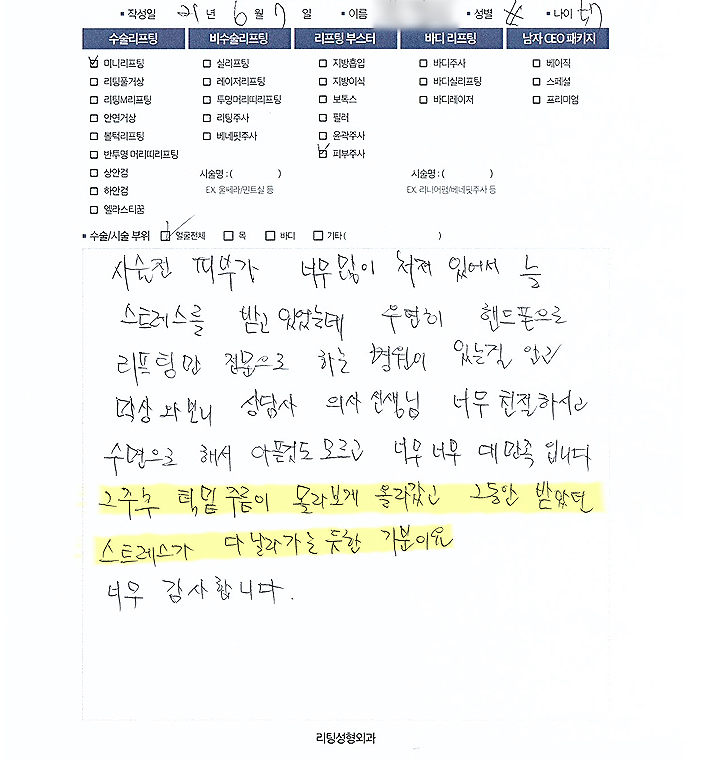 ▪ 작성일 21 년 6 월 7 일 ▪ 이름 ▪ 성별 ▪ 나이
수술리프팅 비수술리프팅 리프팅 부스터 바디 리프팅 남자 CEO 패키지
☑ 미니리프팅 ☐ 실리프팅 ☐ 지방흡입 ☐ 바디주사 ☐ 베이직
☐ 리팅풀거상 ☐ 레이저리프팅 ☐ 지방이식 ☐ 바디실리프팅 ☐ 스페셜
☐ 리팅M리프팅 ☐ 투명머리띠리프팅 ☐ 보톡스 ☐ 바디레이저 ☐ 프리미엄
☐ 안면거상 ☐ 리팅주사 ☐ 필러
☐ 볼턱리프팅 ☐ 베네핏주사 ☐ 윤곽주사
☐ 반투영 머리띠리프팅 ☑ 피부주사
☐ 상안검 시술명 : ( ) 시술명 : ( )
☐ 하안검 EX. 울쎄라/민트실 등 EX. 리니어펌/베네핏주사 등
☐ 엘라스티꿈
▪ 수술/시술 부위 ☑ 얼굴전체 ☐ 목 ☐ 바디 ☐ 기타 ( )
시술전 피부가 너무 많이 쳐져 있어서 늘
스트레스를 받고 있었는데 우연히 핸드폰으로
리프팅만 전문으로 하는 병원이 있는걸 알고
막상 와보니 상담사 의사 선생님 너무 친절하시고
수면으로 해서 아픈것도 모르고 너무 너무 대만족 입니다
그주후 턱밑 주름이 몰라보게 올라갔고 그동안 받았던
스트레스가 다 날라가는 듯한 기분이요
너무 감사합니다.
리팅성형외과